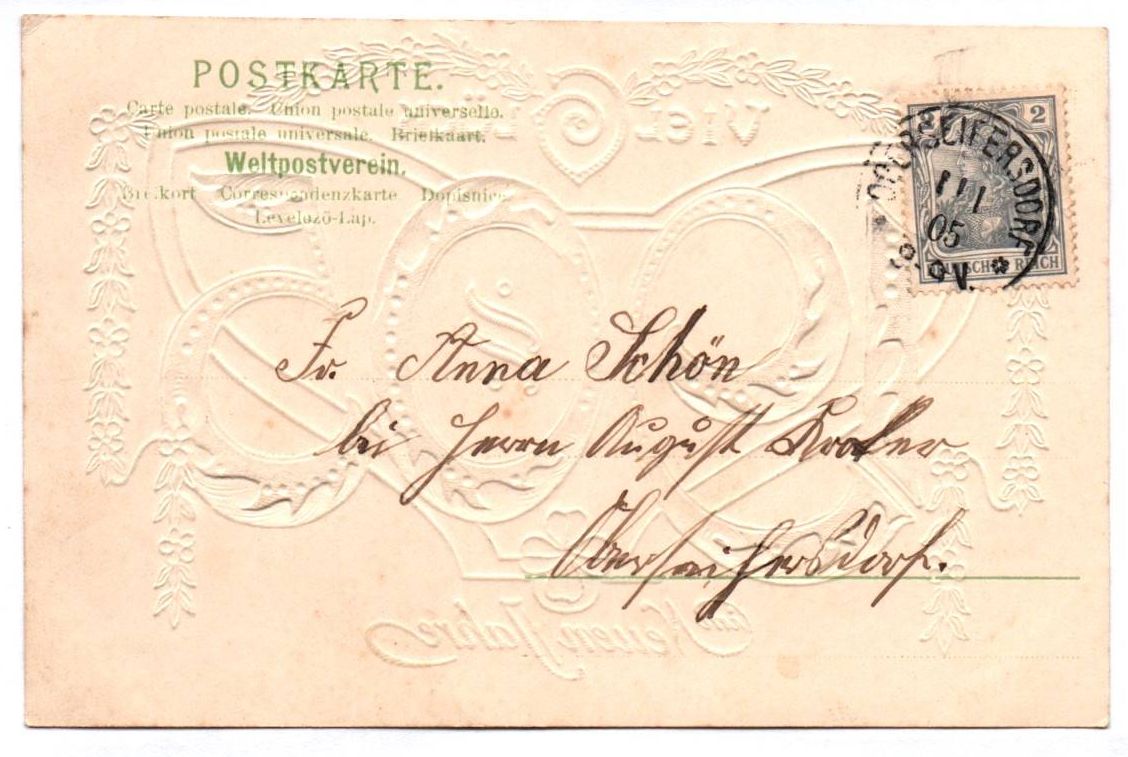 POSTKARTE.
Carte postale. Union postale universelle.
Union postale universale. Briefkaart.
Weltpostverein.
Brevkort Correspondenzkarte Dopisnice
Levelező-Lap.
2 2
DEUTSCHES REICH
OBERSEIFERSDORF
1 1
05
8-9 V.
VIEL
Fr. Anna Schön
bei Herrn August
Oberseifersdorf.
Neuen Jahre